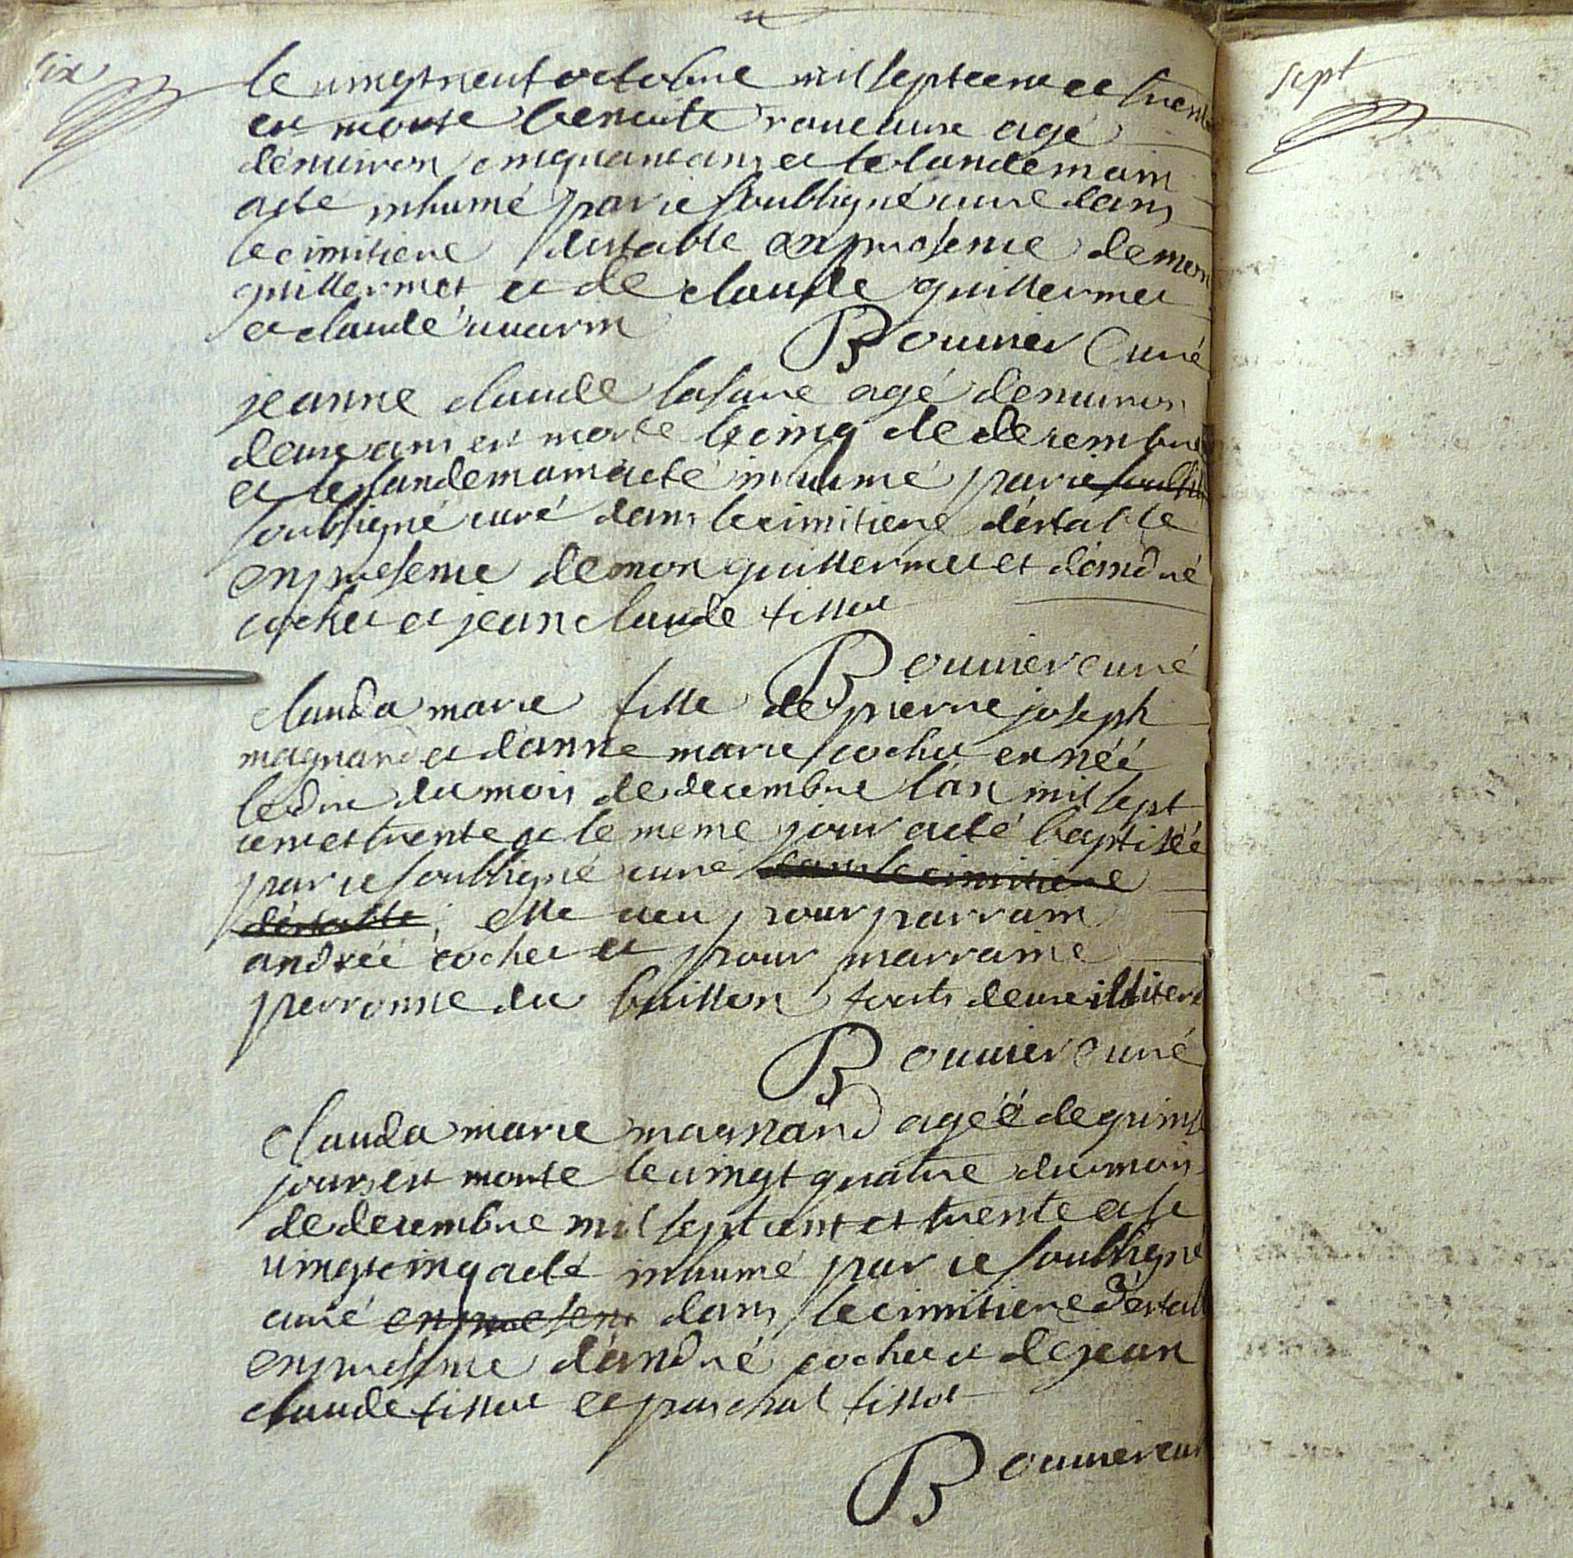 six
le vingt neuf octobre mil sept cent et trente
est morte benoite agé
denuiron cinquant ans et le landemain
aesté inhumé par ie soubsigné curé dans
le cimitiere destable en presence de mon
guillermet et de claude guillermet
et claude
Bouuier Curé
jeanne claude agé denuiron
deux ans est morte le cinq de decembre
et le landemain aeté inhumé par
soubsigné curé dans le cimitiere déstable
en presence de mon guillermet et dándré
cochet et jean claude tissot
Bouuier curé
clauda marie fille de pierre joseph
magnand et dánne marie cochet est néé
le dix du mois de decembre lan mil sept
cent et trente et le meme jour aeté baptiséé
par ie soubsigné curé dans le cimitiere
déstable, elle aeu pour parrain
andréé cochet et pour marraine
perronne du buisson touts deux illiteré
Bouuier curé
clauda marie magnand agéé de quinse
jours est morte le vingt quatre du mois
de decembre mil sept cent et trente et le
vingt cinq aeté inhumé par ie soubsigné
curé en presens dans le cimitiere déstabl
en presence dándré cochet et de jean
claude tissot et paschal tissot
Bouuier cur
sept